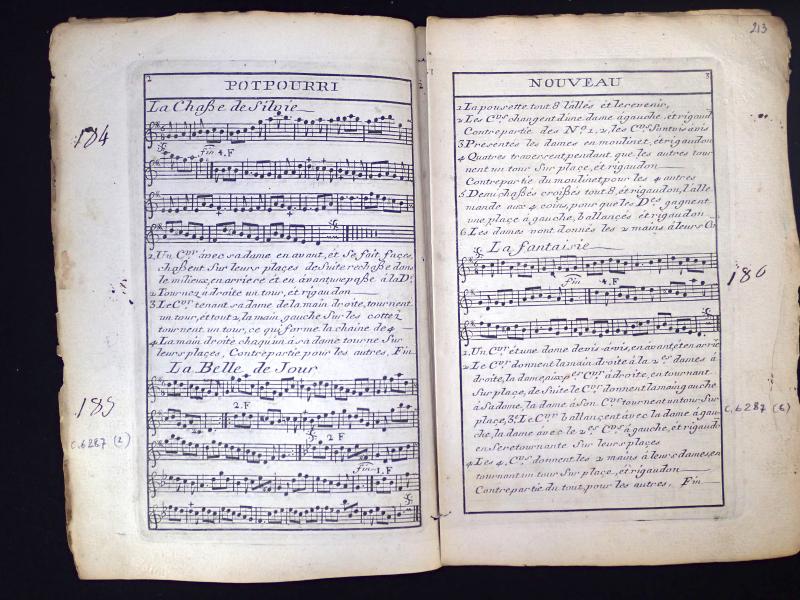 2
POTPOURRI
La Chaße de Silvie
184
fin 4. F
1. Un Cer. avec sa dame en avant, et se fait façes,
chaßent Sur leurs plaçes de Suite rechaße dans
le milieu, en arriere et en avant une paße à la De.
2. Tournez à droite un tour, et rigaudon
3. Le Cer tenant sa dame de la main droite, tournent
un tour, et tout 2, la main gauche Sur les cottez
tournent un tour, ce qui forme la chaine de 4
4. La main droite chaqu'un à sa dame tourne Sur
leurs plaçes, Contrepartie pour les autres, Fin
La Belle de Jour
185
2. F
C.6287 (2)
2 F
fin 1. F
213
3
NOUVEAU
1 La pousette tout 8 l'alles et le revenir,
2 Les Cers changent d'une dame à gauche, et rigaud
Contrepartie des No 1, 2, les Cers
3. Presentes les dames en moulinet, et rigaudon
4 Quatres traversent pendant que les autres tour
nent un tour Sur plaçe, et rigaudon
Contrepartie du moulinet pour les 4 autres
5 Demi chaßés croißés tout 8, et rigaudon, l'alle
mande aux 4 coins, pour que les Des gagnent
une plaçe à gauche, ballançés et rigaudon
6. Les dames vont donnés les 2 mains à leurs
La fantaisie
fin 4. F
186
1. Un Cer et une dame de vis à vis, en avant, et en arrie
2 Le Cer donnent la main droite à la 2e dames à
droite, la dame, aux Cer à droite, en tournant
Sur plaçe, de Suite le Cer donnent la main gauche
à Sa dame, la dame à Son Cer tournent un tour Sur
plaçe, 3. Le Cer ballançent avec la dame à gau
che, la dame avec le 2e Cer à gauche, et rigaud
en Se retournante Sur leurs plaçes
C.6287 (3)
4 Les 4, Cers donnent les 2 mains à leurs dames, en
tournant un tour Sur plaçe, et rigaudon
Contrepartie du tout, pour les autres, Fin